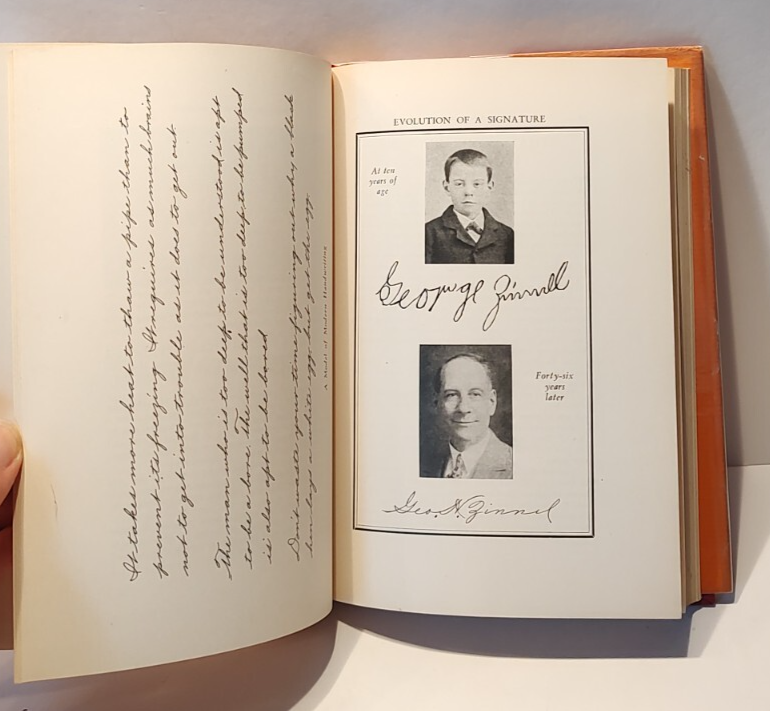 It takes more heat to thaw a pipe than to
prevent its freezing It requires as much brains
not to get into trouble as it does to get out
The man who is too deep to be understood is apt
to be a bore. The well that is too deep to be pumped
is also apt to be bored
Don't waste your time figuring out why a black
hen lays a white egg, but get the egg
A Model of Modern Handwriting
EVOLUTION OF A SIGNATURE
At ten
years of
age
George Zinnel
Forty-six
years
later
Geo. H. Zinnel